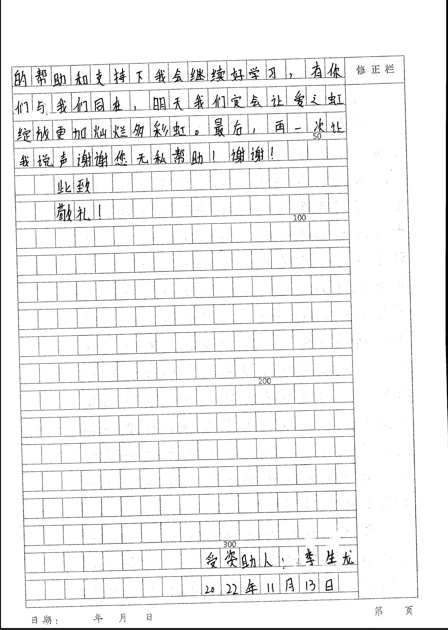 的帮助和支持下我会继续好学习，有你
修正栏
们与我们同在，明天我们定会让爱之虹
绽放更加灿烂多彩虹。最后，再一次让
50
我说声谢谢您无私帮助！谢谢！
此致
敬礼！
100
200
300
受资助人：李生龙
2022年11月13日
日期： 年 月 日
第 页